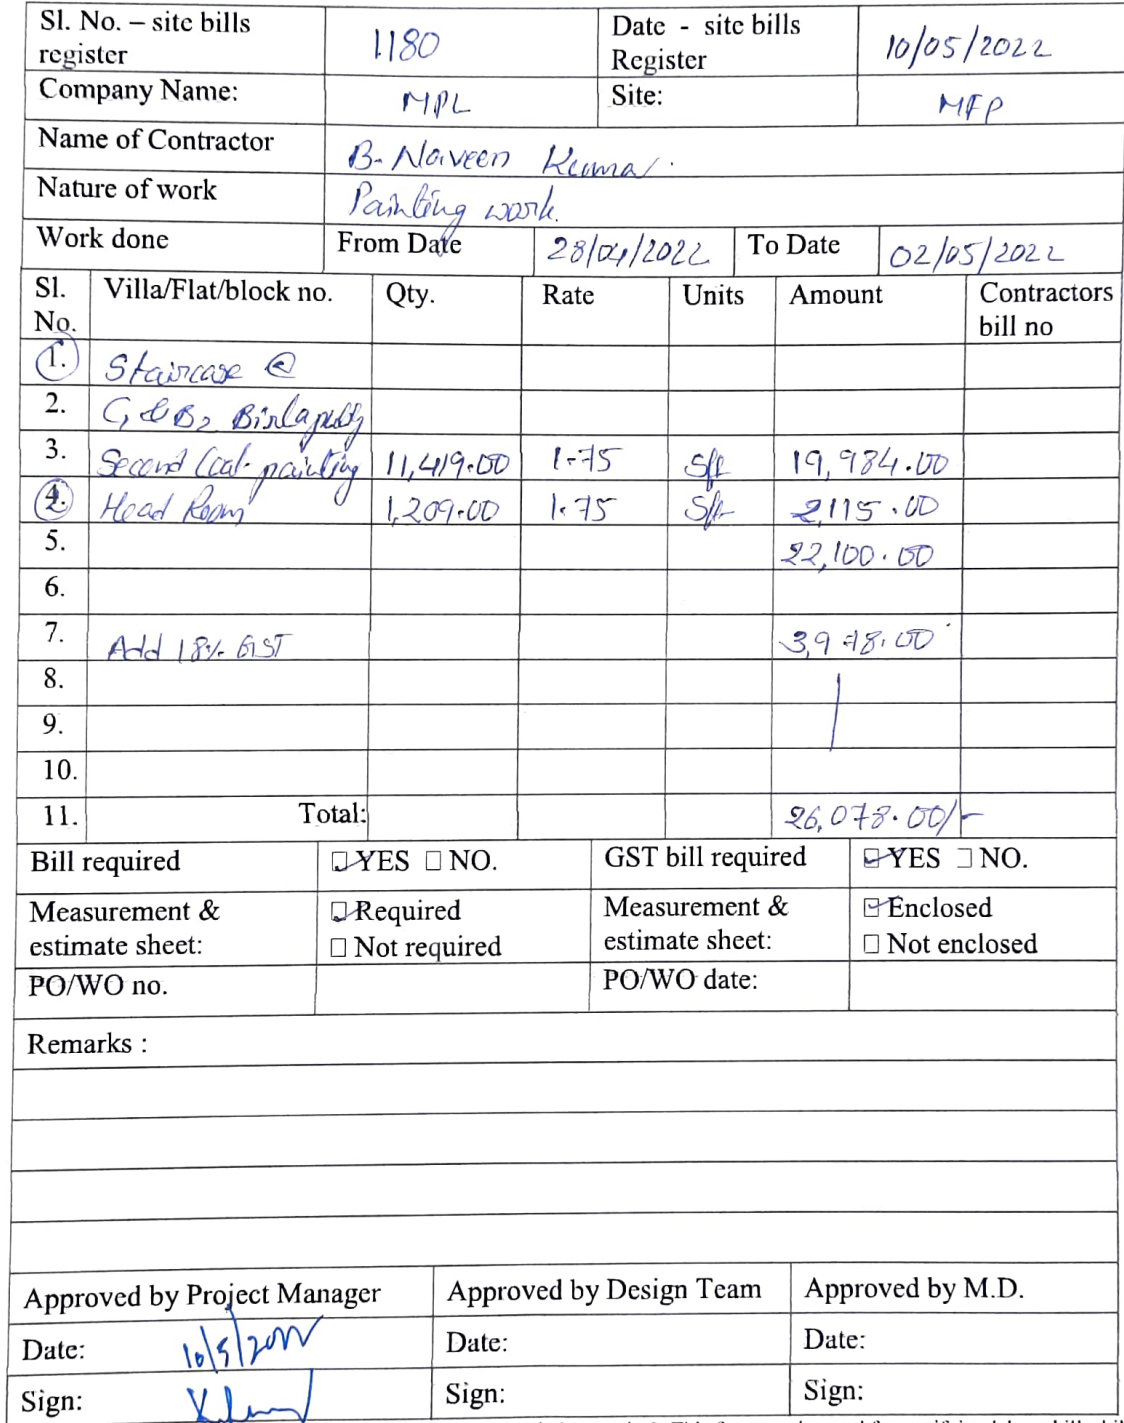 Sl. No. – site bills register 1180 Date - site bills Register 10/05/2022
Company Name: MPL Site: MFP
Name of Contractor B. Naveen Kumar.
Nature of work Painting work.
Work done From Date 28/04/2022 To Date 02/05/2022
Sl. No. Villa/Flat/block no. Qty. Rate Units Amount Contractors bill no
1. Staircase @
2. C, & B2 Birlaputty
3. Second Coat painting 11,419.00 1.75 Sft 19,984.00
4. 2. Head Room 1,209.00 1.75 Sft 2,115.00
5. 22,100.00
6.
7. Add 18% GST 3,978.00
8.
9.
10.
11. Total: 26,078.00/-
Bill required YES NO. GST bill required YES NO.
Measurement & estimate sheet: Required Not required Measurement & estimate sheet: Enclosed Not enclosed
PO/WO no. PO/WO date:
Remarks :
Approved by Project Manager Approved by Design Team Approved by M.D.
Date: 10/5/2022 Date: Date:
Sign: Sign: Sign: